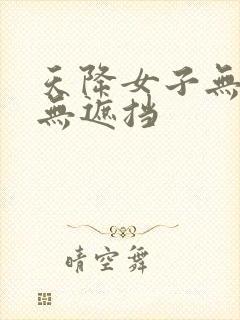 天降女子無
無遮挡
晴空舞